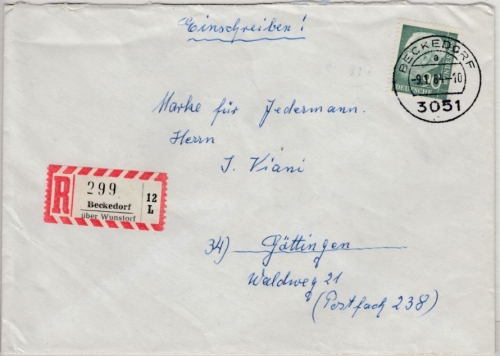 Einschreiben!
BECKEDORF
a
-9.1.64-10
3051
DEUTSCHE
Marke für Jedermann.
Herrn
J. Viani
R
299
Beckedorf
über Wunstorf
12
L
34) Göttingen
Waldweg 21
(Postfach 238)